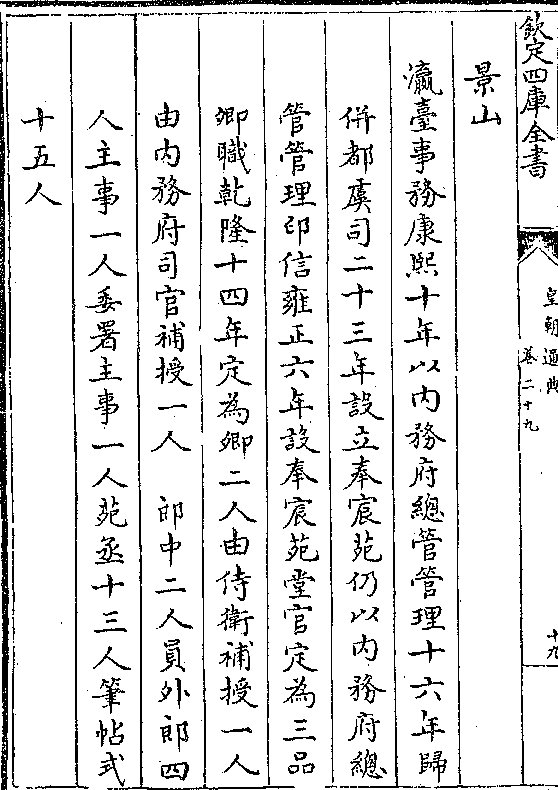 欽定四庫全書
皇朝通典
卷二十九
十九
景山
瀛臺事務康熙十年以内務府總管管理十六年歸
併都虞司二十三年設立奉宸苑仍以内務府總
管管理印信雍正六年設奉宸苑堂官定為三品
卿職乾隆十四年定為卿二人由侍衛補授一人
由内務府司官補授一人　郎中二人員外郎四
人主事一人委署主事一人苑丞十三人筆帖式
十五人